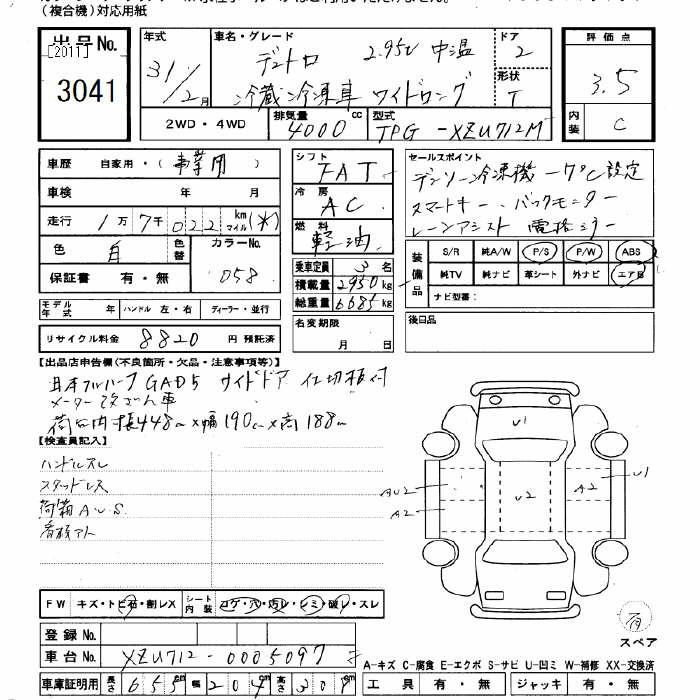 (複合機)対応用紙
出品No. 年式 車名・グレード ドア 評価点
[2011] デュトロ 2.95t 中温 2
3041 31/2月 冷蔵冷凍車 ワイドロング 形状 T 3.5
2WD・4WD 排気量 4000 cc 型式 TPG-XZU712M 内装 C
車歴 自家用・(事業用) シフト FAT セールスポイント
車検 年 月 冷房 AC デンソー冷凍機 -7℃設定
走行 1万7千022 km マイル (*) 燃料 軽油 スマートキー、バックモニター
色 白 色替 カラーNo. 058 レーンアシスト 電格ミラー
保証書 有・無 乗車定員 3名 装備品 S/R 純A/W P/S P/W ABS
積載量 2950kg 純TV 純ナビ 革シート 外ナビ エアB
総重量 6685kg ナビ型番:
モデル年式 年 ハンドル 左・右 ディーラー・並行 名変期限 月 日 後日品
リサイクル料金 8820 円 預託済
【出品店申告欄(不良箇所・欠品・注意事項等)】
日本フルハーフ GAD5 サイドドア 仕切板付
メーター改ざん車
荷台内寸 長448cm×幅190cm×高188cm
【検査員記入】
ハンドルスレ
スタッドレス
荷箱AUS
看板アト
U1
U2
AU2
A2
A2
U1
FW キズ・トビ石・割レX シート内装 コゲ・穴・汚レ・シミ・破レ・スレ
有
スペア
登録No.
車台No. XZU712-0005097
A-キズ C-腐食 E-エクボ S-サビ U-凹ミ W-補修 XX-交換済
車庫証明用 長さ 655cm 幅 204cm 高さ 308cm 工具 有・無 ジャッキ 有・無